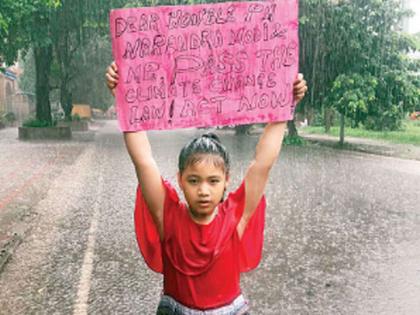 DEAR HON'BLE PM
NARENDRA MODI &
MP PASS THE
CLIMATE CHANGE
LAW! ACT NOW!